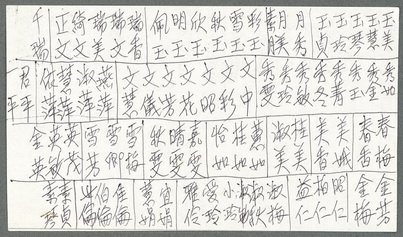 千 正 綺 瑞 瑞 瑞 佩 明 欣 秋 雪 彩 素 月 月 玉 玉 玉 玉 玉
瑞 文 文 美 文 香 玉 玉 玉 玉 玉 玉 月 秀 貞 玲 琴 慧 美
君 依 慧 淑 燕 文 文 文 文 文 文 文 秀 秀 秀 秀 秀 秀 秀 秀
平 萍 萍 萍 萍 慧 儀 芳 花 昭 彩 中 雯 玲 敏 冬 青 玉 金 如
金 英 英 雪 雪 雪 秋 晴 嘉 怡 桂 蕙 淑 桂 美 美 春 春
英 敏 茂 芳 卿 梅 雯 雯 雯 如 如 如 美 美 香 城 香 梅
素 素 伯 佳 慧 宜 雅 愛 小 淑 淑 淑 益 柏 昭 金 金
貞 倫 倫 倫 娟 娟 伶 玲 玲 梅 仁 仁 仁 梅 芳